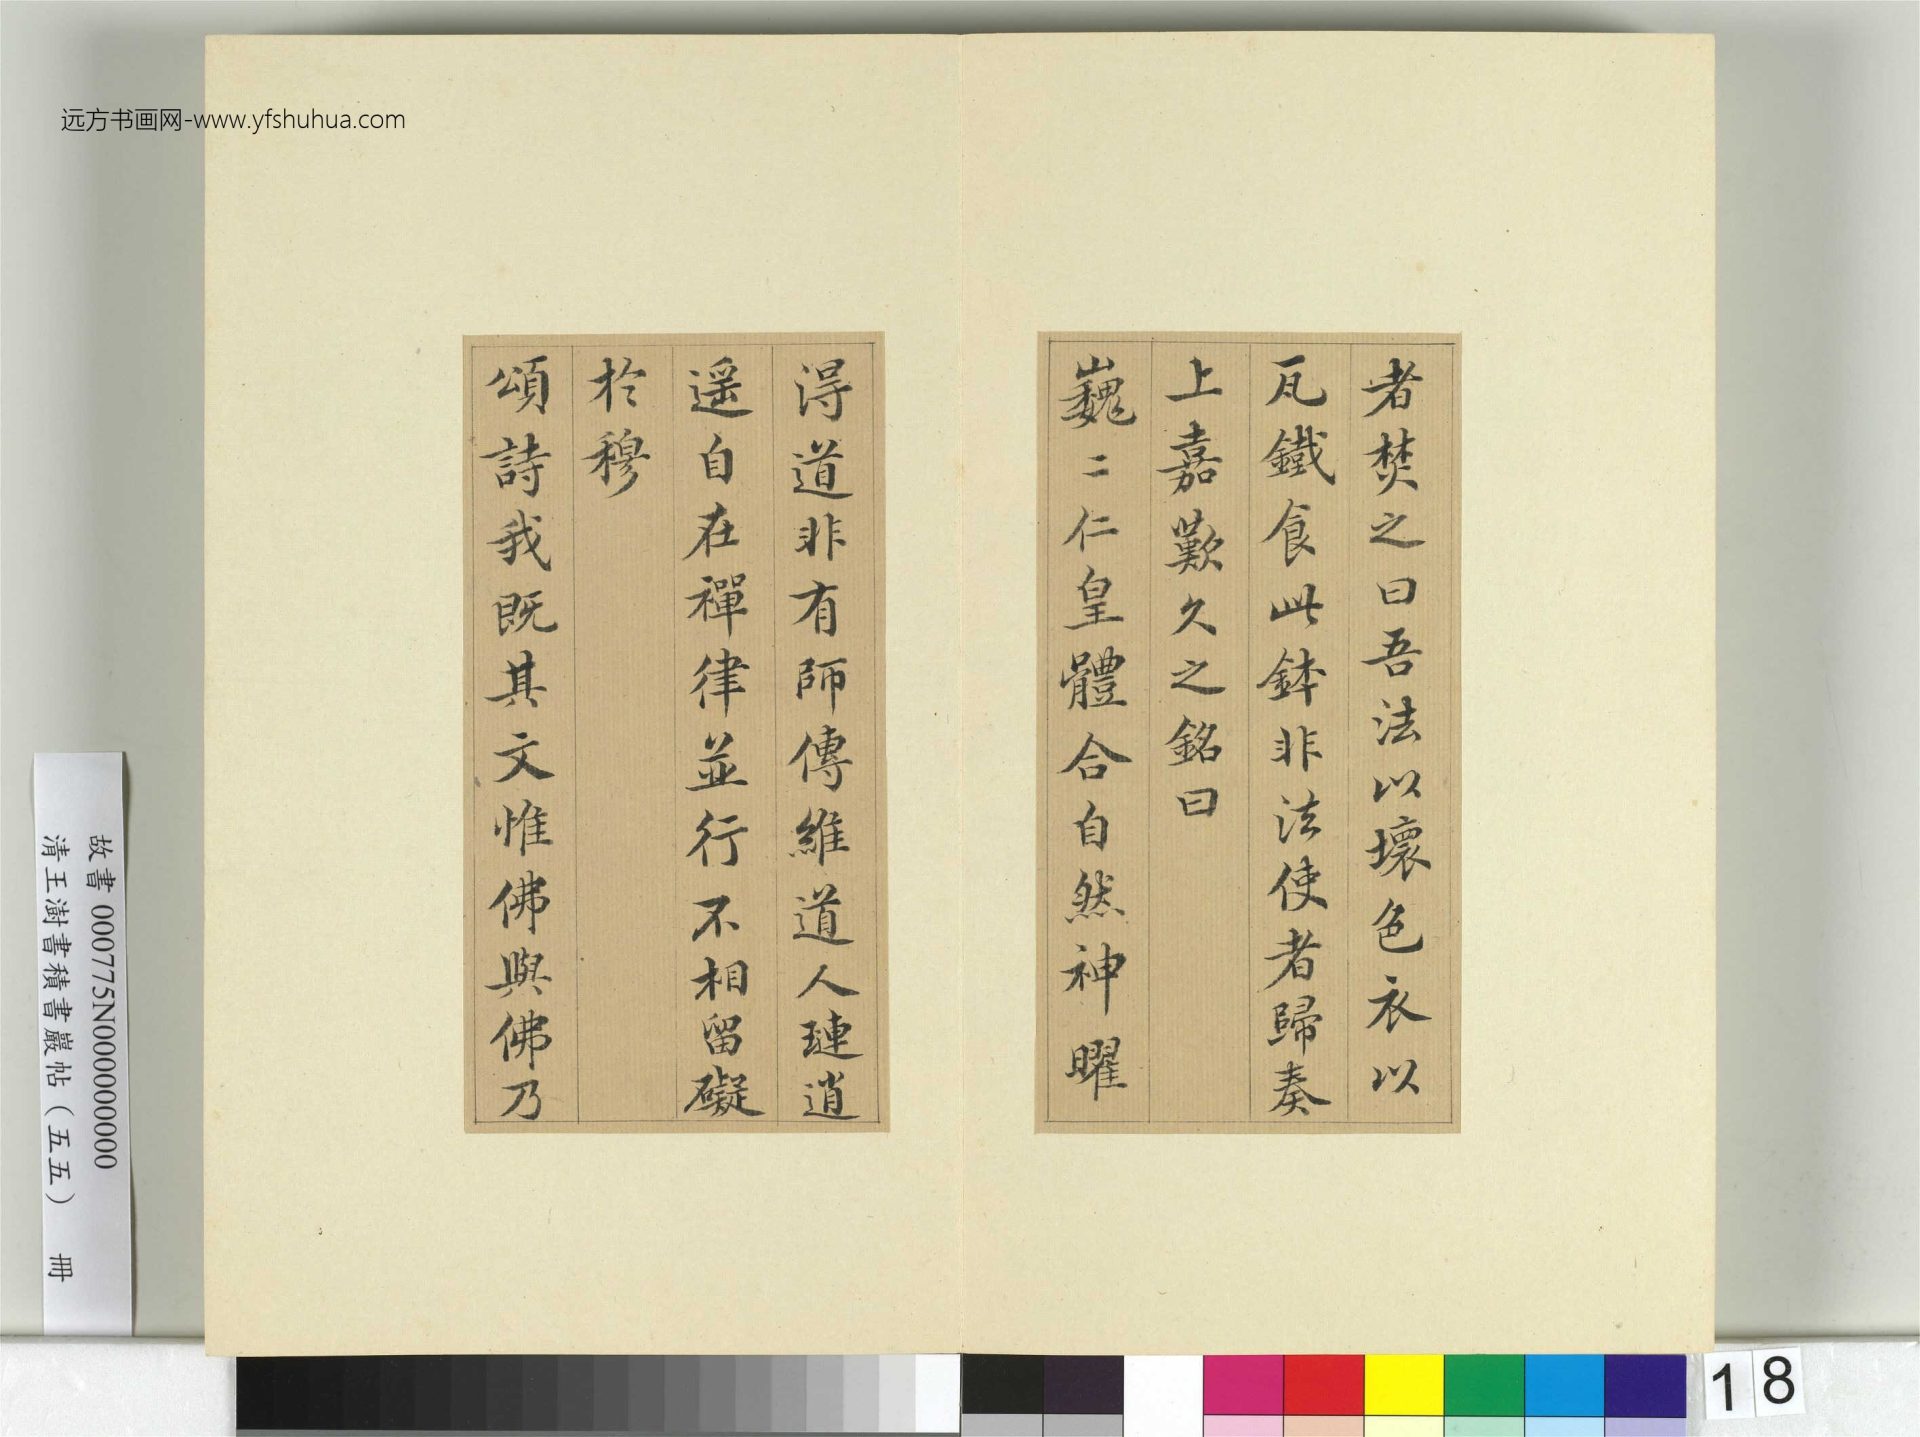 远方书画网-www.yfshuhua.com
者焚之曰吾法以壞色衣以
瓦鐵食此鉢非法使者歸奏
上嘉歎久之銘曰
巍〻仁皇體合自然神曜
得道非有師傳維道人璉逍
遥自在禪律並行不相留礙
於穆
頌詩我既其文惟佛與佛乃
故書000775N000000000
清王澍書積書巖帖(五五) 冊
18